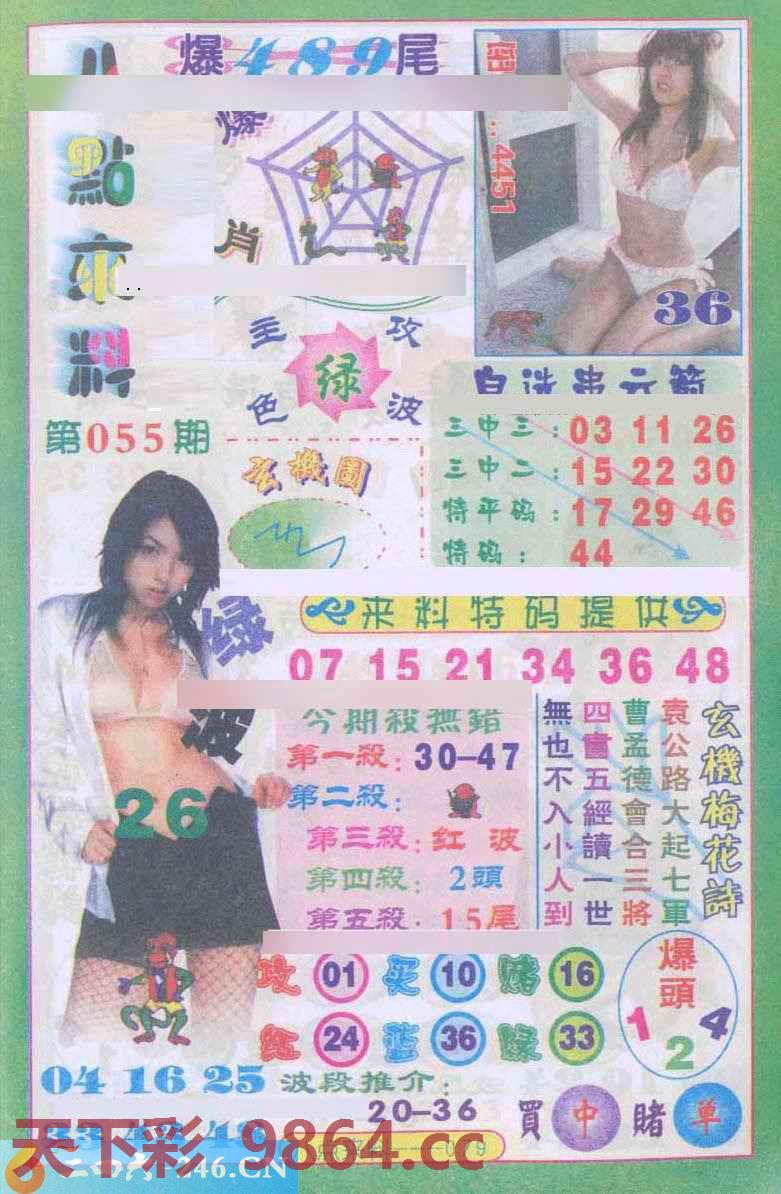 爆489尾
點來料
爆
肖
4451
36
主攻
色波
绿
第055期
玄機圖
三中三：03 11 26
三中二：15 22 30
特平码：17 29 46
特码：44
来料特码提供
07 15 21 34 36 48
波
26
今期殺無錯
第一殺：30-47
第二殺：
第三殺：红波
第四殺：2頭
第五殺：1.5尾
玄機梅花詩
袁公路大起七軍
曹孟德會合三將
四書五經讀一世
無也不入小人到
攻 01 买 10 赌 16
红 24 蓝 36 绿 33
爆頭
1 2 4
04 16 25
波段推介：
20-36
買中賭单
天下彩 9864.cc
二四六 246.CN